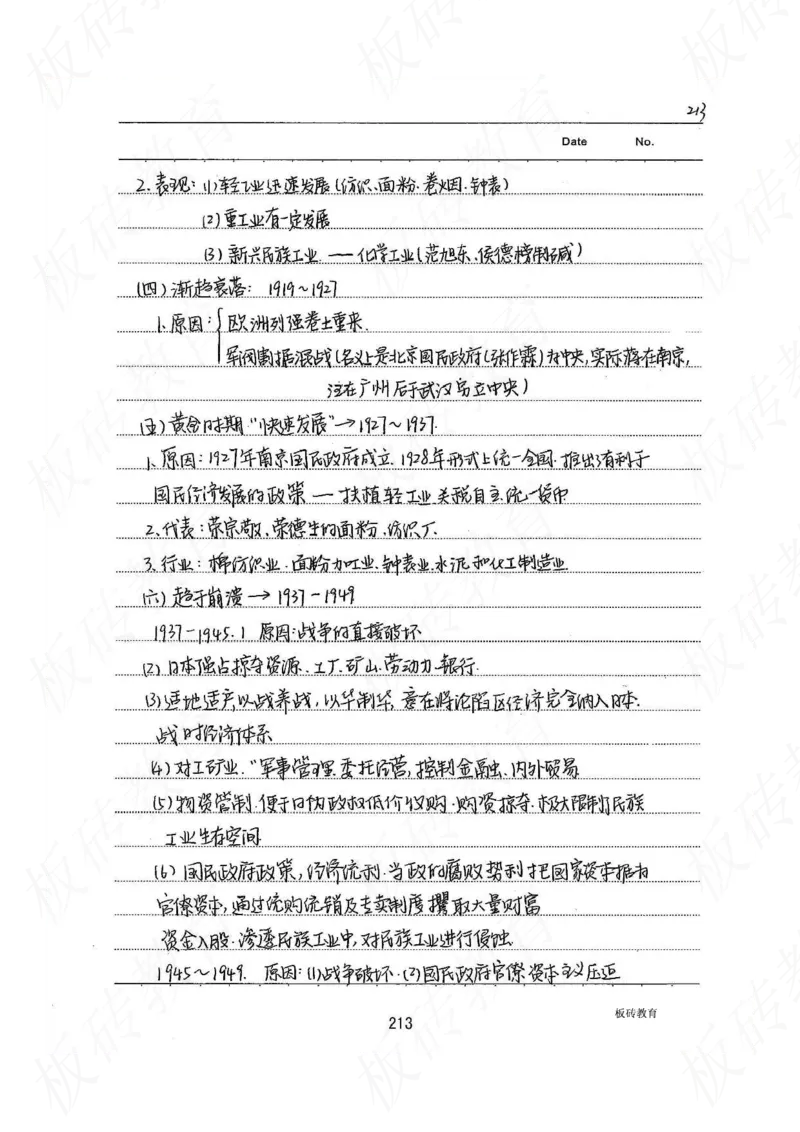 213
Date No.
2.表现：(1)轻工业迅速发展(纺织、面粉、卷烟、钟表)
(2)重工业有一定发展
(3)新兴民族工业 —— 化学工业(范旭东、侯德榜制碱)
(四)渐趋衰落：1919～1927
1.原因：{欧洲列强卷土重来.
军阀割据混战(名义上是北京国民政府(张作霖)为中央,实际蒋在南京,
汪在广州后于武汉另立中央)
(五)黄金时期“快速发展”→1927～1937.
1.原因：1927年南京国民政府成立.1928年形式上统一全国.推出有利于
国民经济发展的政策 — 扶植轻工业.关税自主.统一货币
2.代表：荣宗敬、荣德生的面粉、纺织厂.
3.行业：棉纺织业、面粉加工业、钟表业、水泥和化工制造业
(六)趋于崩溃→1937-1949
1937-1945.1 原因:战争的直接破坏
(2)日本强占掠夺资源、工厂.矿山.劳动力.银行.
(3)适地适产,以战养战,以华制华,意在将沦陷区经济完全纳入日本.
战时经济体系
(4)对工矿业.“军事管理.委托经营,控制金融、内外贸易
(5)物资管制.便于日伪政权低价收购.购资掠夺.极大限制民族
工业生存空间
(6)国民政府政策,经济统制.当政的腐败势利把国家资本据为
官僚资本,通过统购统销及专卖制度攫取大量财富
资金入股.渗透民族工业中,对民族工业进行侵蚀.
1945～1949. 原因:(1)战争破坏.(2)国民政府官僚资本主义压迫
213
板砖教育